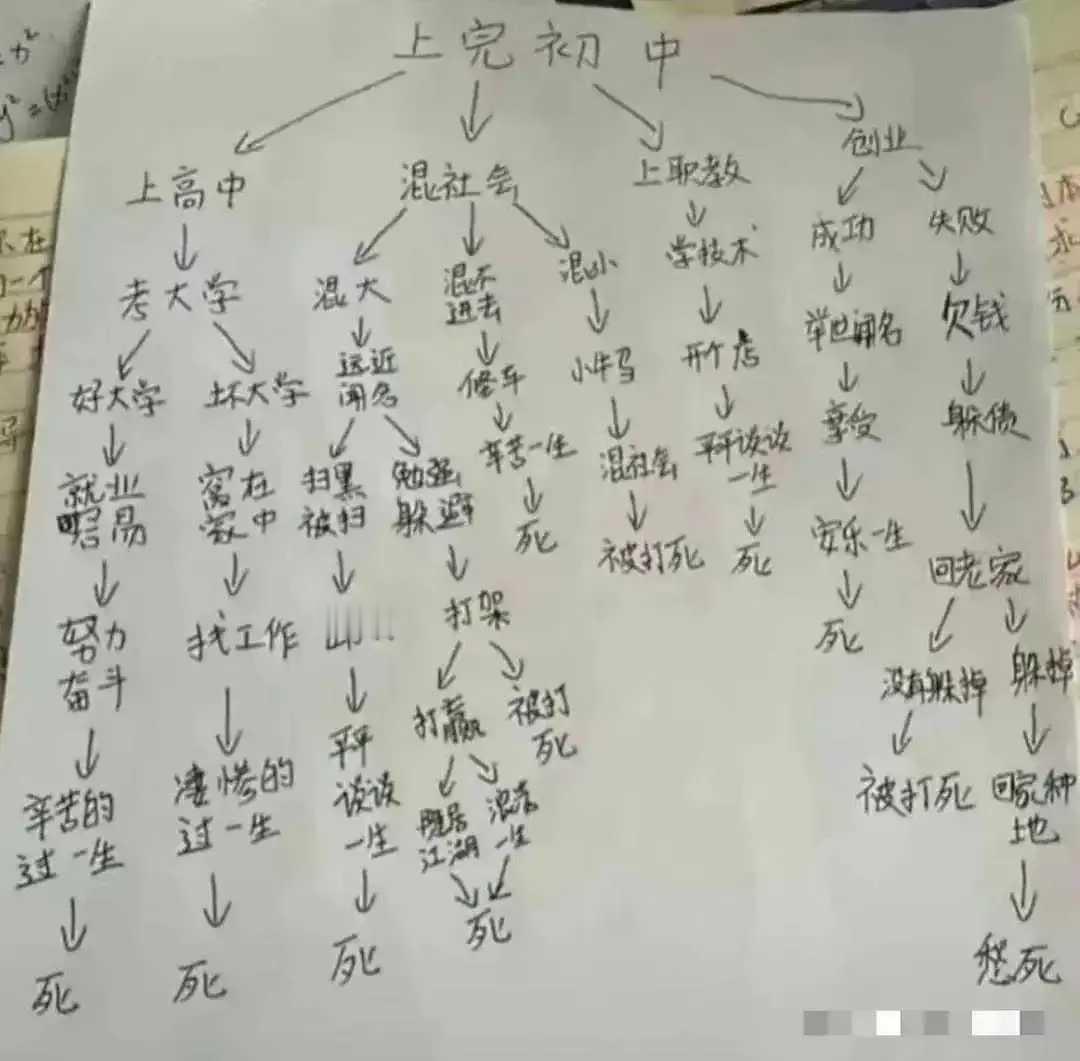 上完初中
上高中
考大学
好大学
就业
容易
努力
奋斗
辛苦的
过一生
死
坏大学
窝在
家中
找工作
凄惨的
过一生
死
混社会
混大
远近
闻名
扫黑
被扫
平平
谈谈
一生
死
勉强
躲避
打架
打赢
隐居
江湖
混荡
一生
死
被打
死
混不
进去
修车
辛苦一生
死
混小
小牛马
混社会
被打死
上职教
学技术
开个店
平平谈谈
一生
死
创业
成功
举世闻名
享受
安乐一生
死
失败
欠钱
躲债
回老家
没有躲掉
被打死
躲掉
回家种
地
愁死